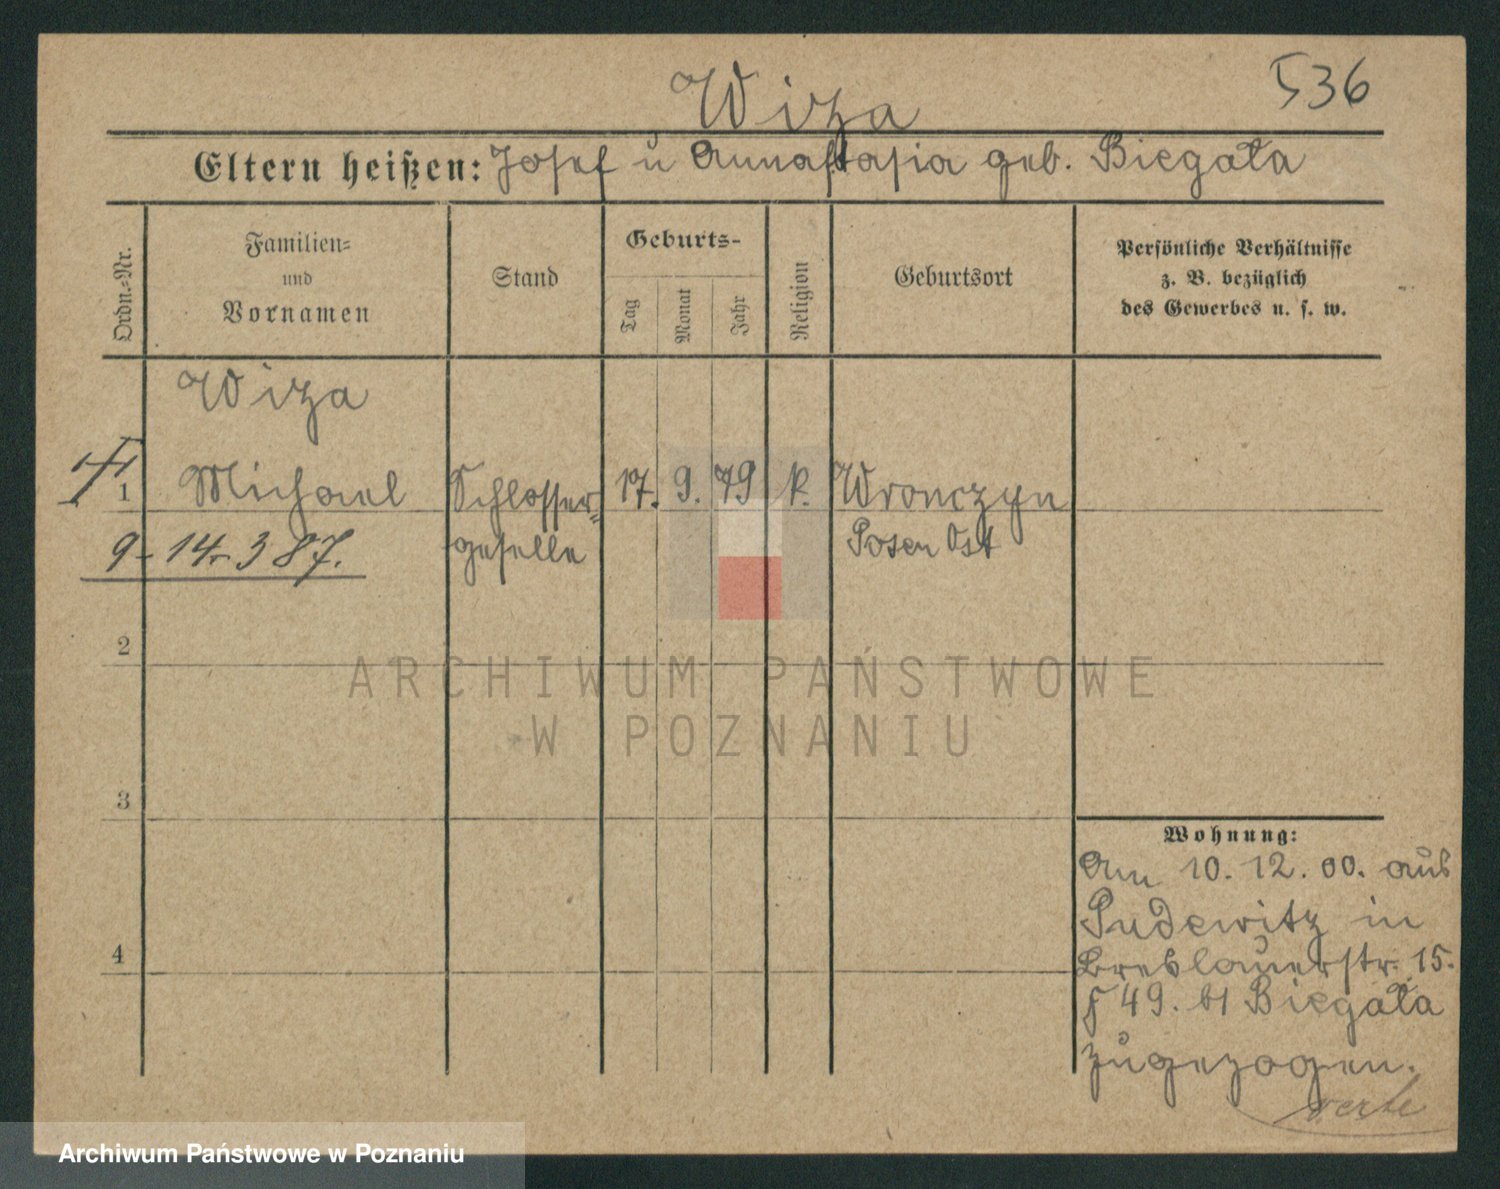 Wiza
536
Eltern heißen: Josef u Annastasia geb. Biegała
Ordn.-Nr.
Familien-
und
Vornamen
Stand
Geburts-
Tag
Monat
Jahr
Religion
Geburtsort
Persönliche Verhältnisse
z. B. bezüglich
des Gewerbes u. s. w.
Wiza
1 Michael Schlosser= 17. 9. 79 k. Wronczyn
9-14. 387. geselle Posen Ost
2
ARCHIWUM PAŃSTWOWE
W POZNANIU
3
Wohnung:
Am 10. 12. 00. aus
Pudewitz in
4
Breslauerstr. 15.
49. Biegała
zugezogen.
verte
Archiwum Państwowe w Poznaniu